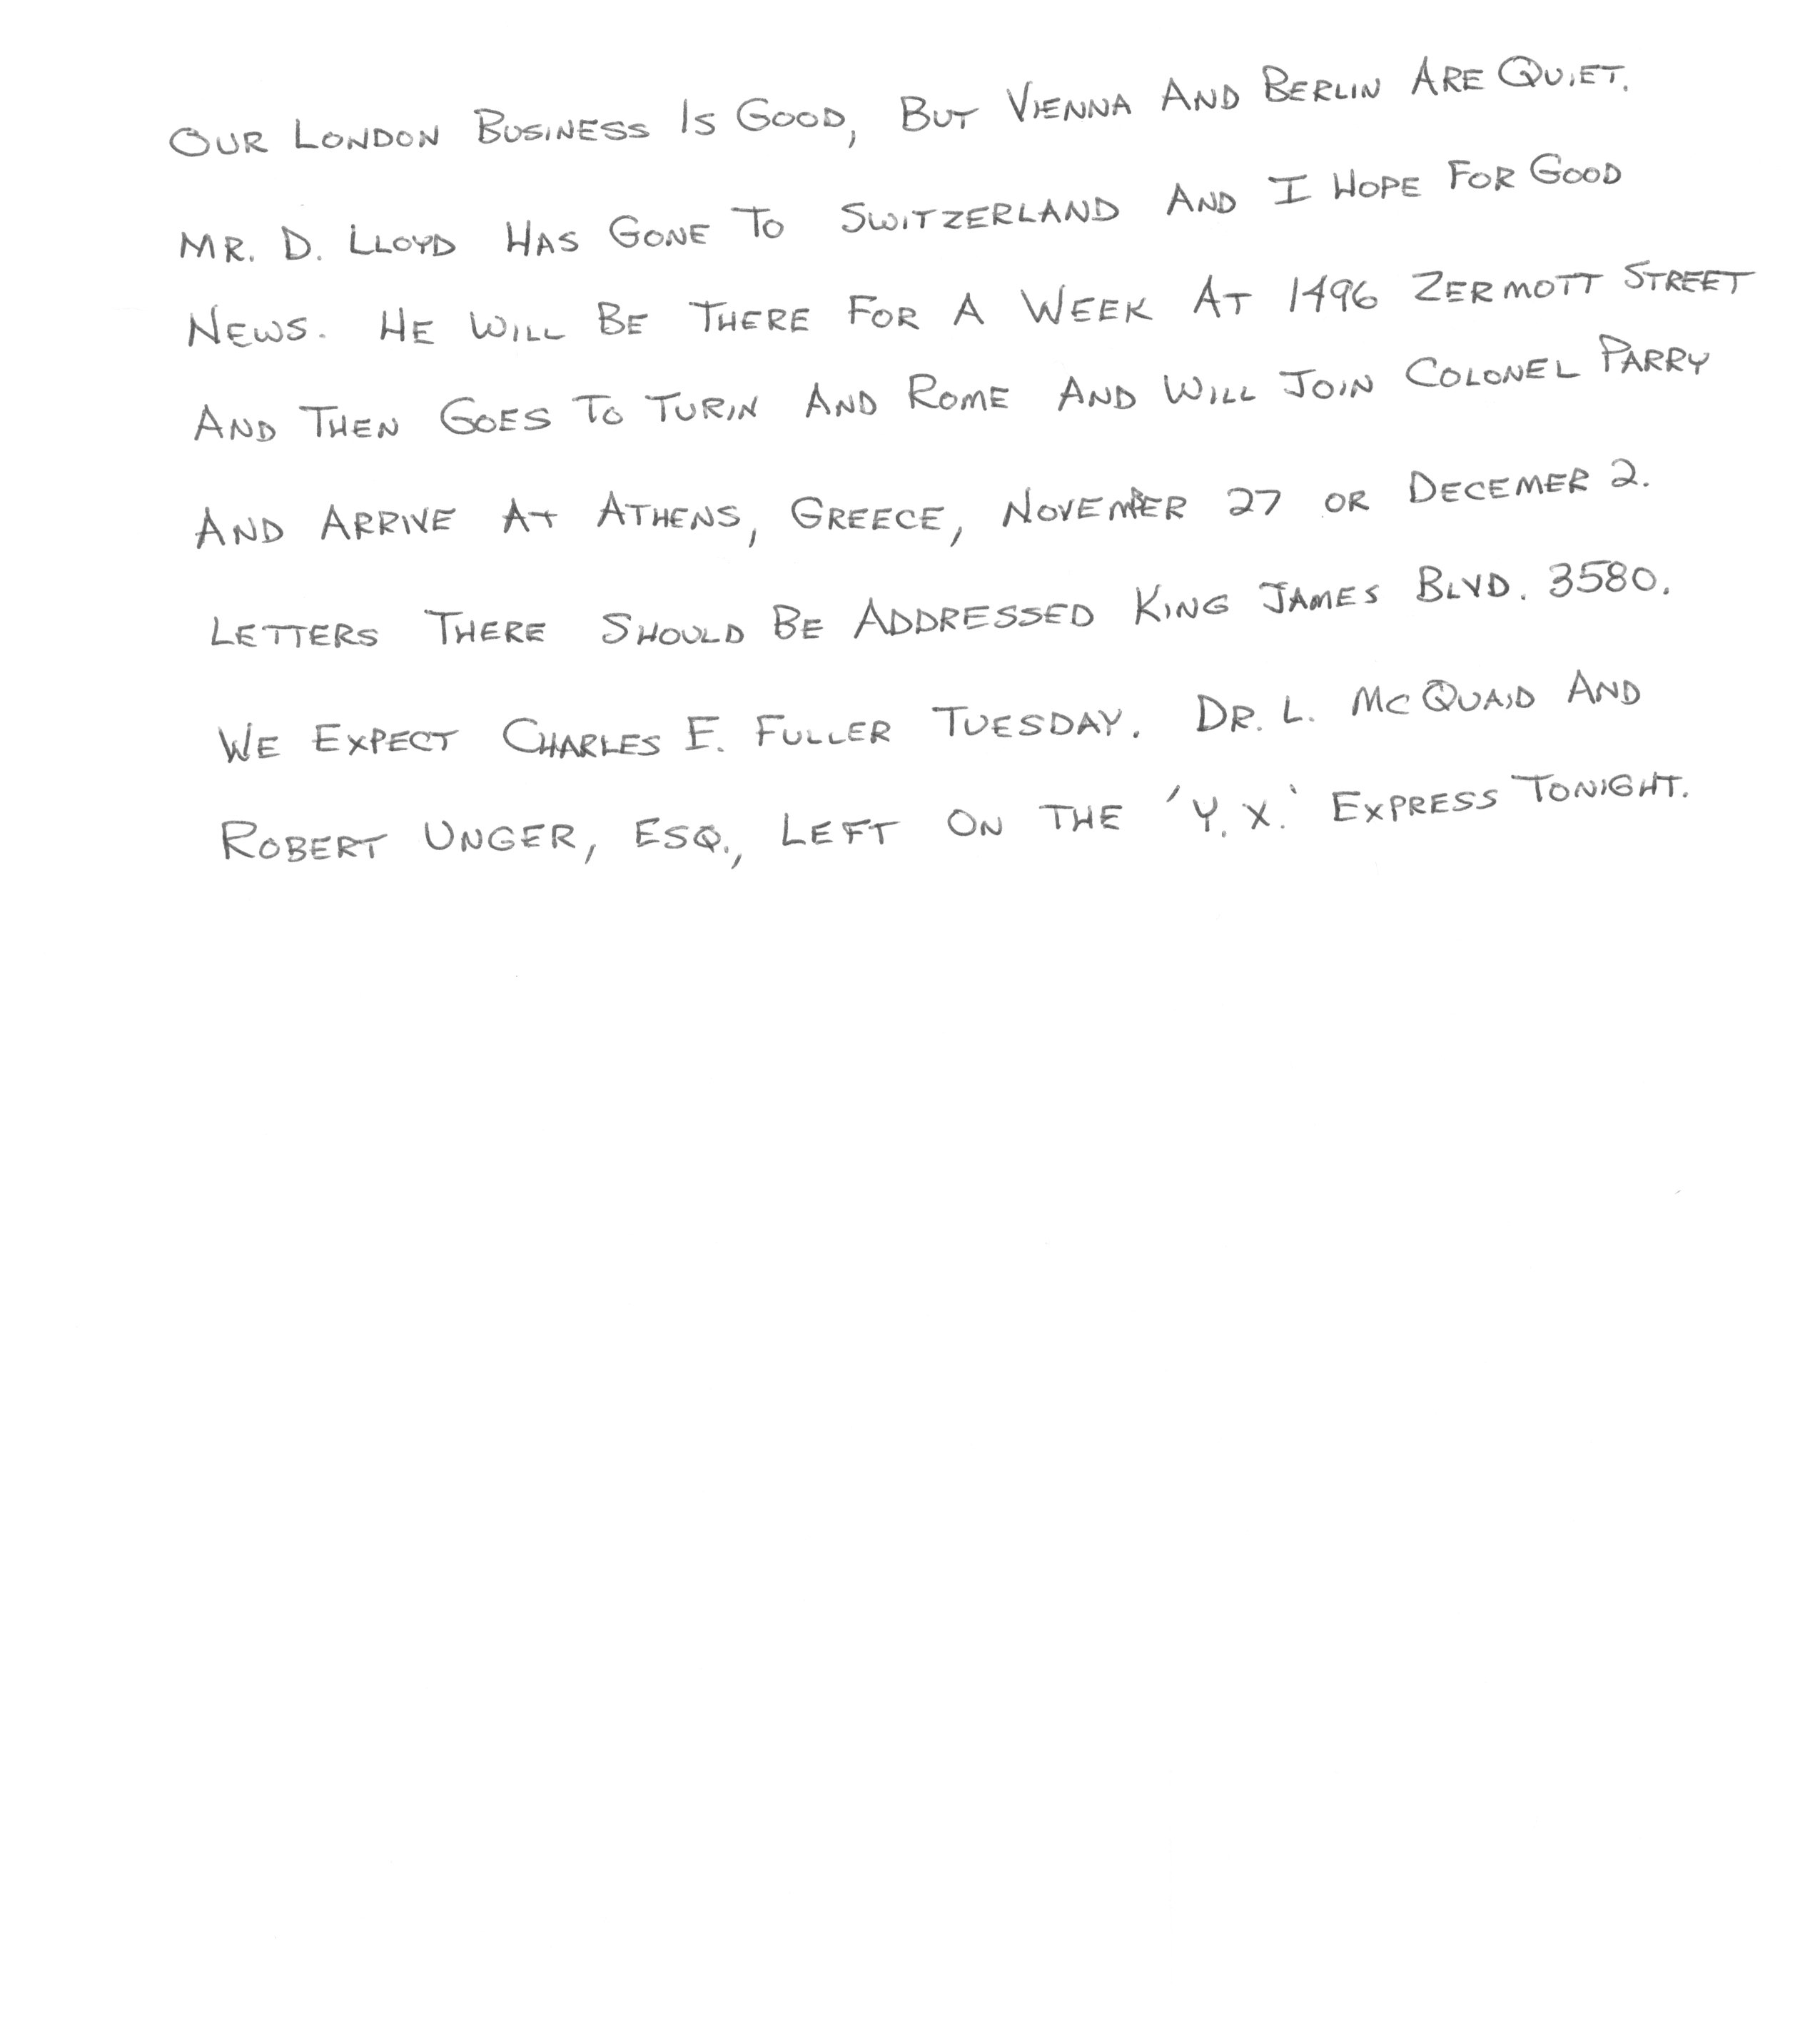 OUR LONDON BUSINESS IS GOOD, BUT VIENNA AND BERLIN ARE QUIET.
MR. D. LLOYD HAS GONE TO SWITZERLAND AND I HOPE FOR GOOD
NEWS. HE WILL BE THERE FOR A WEEK AT 1496 ZERMOTT STREET
AND THEN GOES TO TURIN AND ROME AND WILL JOIN COLONEL PARRY
AND ARRIVE AT ATHENS, GREECE, NOVEMBER 27 OR DECEMER 2.
LETTERS THERE SHOULD BE ADDRESSED KING JAMES BLVD. 3580.
WE EXPECT CHARLES E. FULLER TUESDAY. DR. L. MCQUAID AND
ROBERT UNGER, ESQ., LEFT ON THE 'Y.X.' EXPRESS TONIGHT.